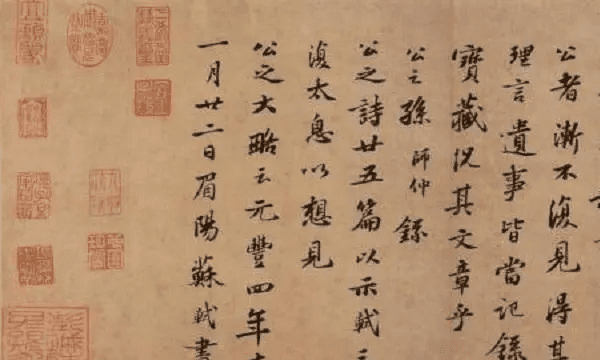 公者漸不復見得其
理言遺事皆當記錄
寶藏況其文章乎
公之孫師仲錄
公之詩廿五篇以示軾三
復太息以想見
公之大略云元豐四年十
一月廿二日眉陽蘇軾書